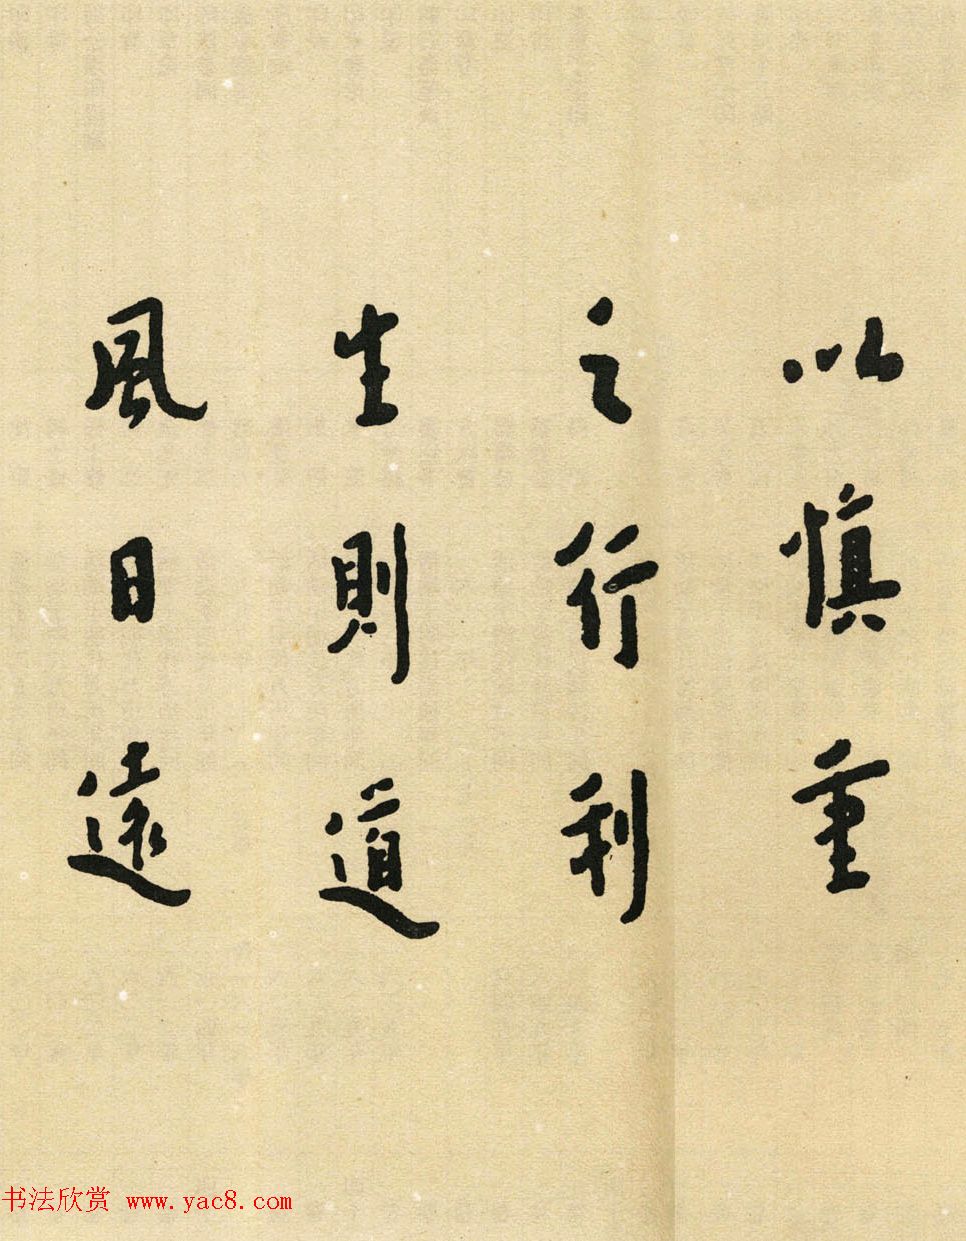 以慎重
之行利
生則道
風日遠
书法欣赏 www.yac8.com